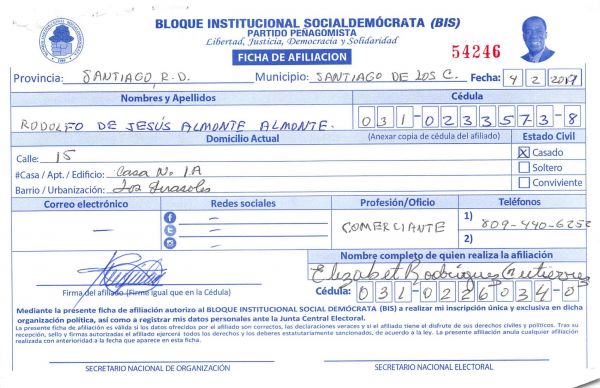 BLOQUE INSTITUCIONAL SOCIALDEMÓCRATA (BIS)
PARTIDO PEÑAGOMISTA
Libertad, Justicia, Democracia y Solidaridad
54246
FICHA DE AFILIACION
Provincia: SANTIAGO R.D. Municipio: SANTIAGO DE LOS C. Fecha: 4 2 2017
Nombres y Apellidos Cédula
RODOLFO DE JESÚS ALMONTE ALMONTE. 031-0233573-8
Domicilio Actual (Anexar copia de cédula del afiliado) Estado Civil
Calle: 15 X Casado
#Casa / Apt. / Edificio: Casa No 1A Soltero
Barrio / Urbanización: Los Girasoles Conviviente
Correo electrónico Redes sociales Profesión/Oficio Teléfonos
— f — COMERCIANTE 1) 809-440-6252
— 2)
—
Nombre completo de quien realiza la afiliación
Elizabet Rodríguez Gutierrez
Firma del afiliado (Firme igual que en la Cédula) Cédula: 031-0226034-0
Mediante la presente ficha de afiliación autorizo al BLOQUE INSTITUCIONAL SOCIAL DEMÓCRATA (BIS) a realizar mi inscripción única y exclusiva en dicha
organización política, así como a registrar mis datos personales ante la Junta Central Electoral.
La presente ficha de afiliación es válida si los datos ofrecidos por el afiliado son correctos, las declaraciones veraces y si el afiliado tiene el disfrute de sus derechos civiles y políticos. Tras su
recepción, sello y firmas autorizadas el afiliado ejercerá todos los derechos y los deberes estatutariamente sancionados, de acuerdo a la ley. La presente afiliación anula cualquier afiliación
realizada con anterioridad a la fecha que aparece en esta ficha.
SECRETARIO NACIONAL DE ORGANIZACIÓN SECRETARIO NACIONAL ELECTORAL